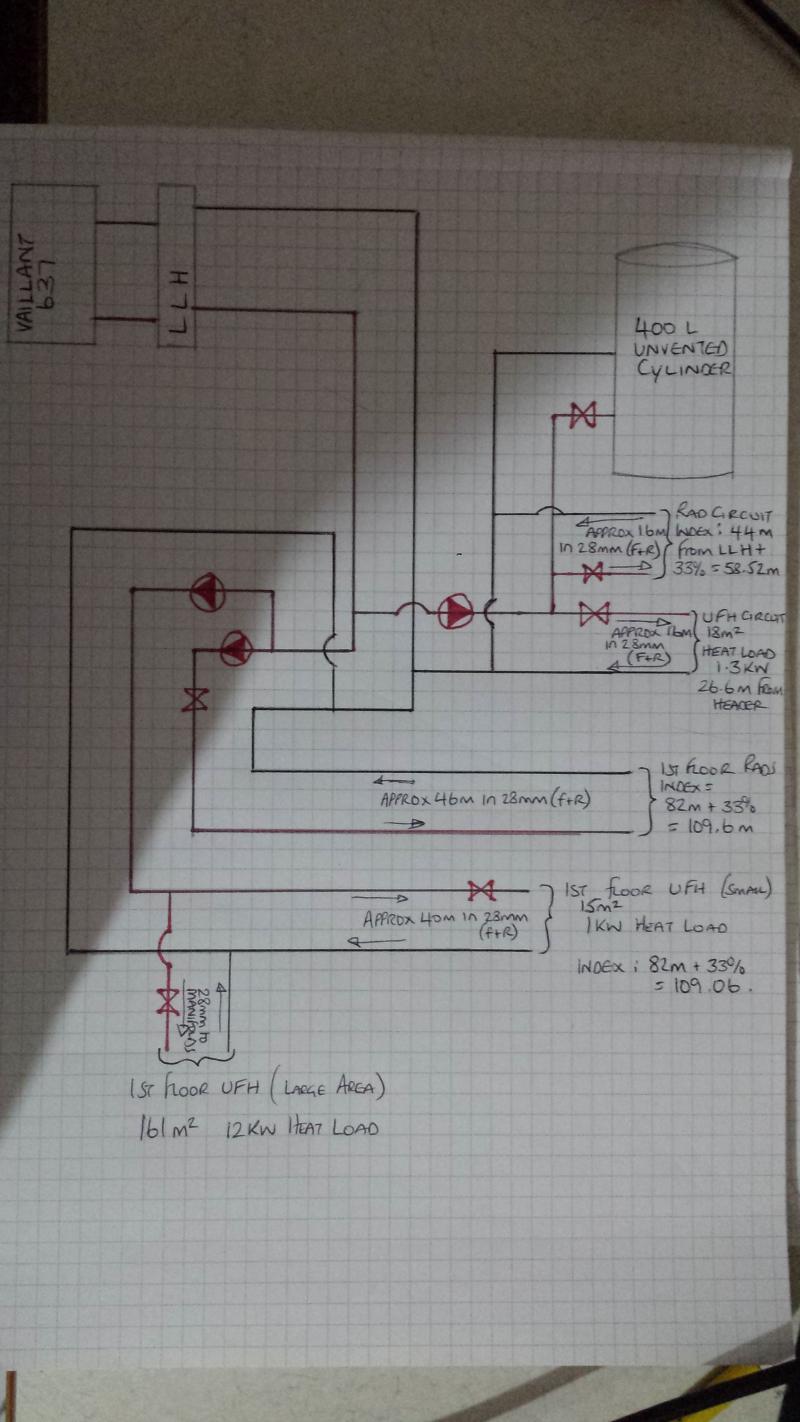 VAILLANT
637
LLH
400 L
UNVENTED
CYLINDER
RAD CIRCUIT
INDEX: 44M
FROM LLH +
33% = 58.52M
APPROX 16M
IN 28MM (F+R)
UFH CIRCUIT
18M²
HEAT LOAD
1.3KW
26.6M FROM
HEADER
APPROX 16M
IN 28MM
(F+R)
1ST FLOOR RADS
INDEX =
82M + 33%
= 109.6M
APPROX 46M IN 28MM (F+R)
1ST FLOOR UFH (SMALL)
15M²
1KW HEAT LOAD
INDEX: 82M + 33%
= 109.06.
APPROX 40M IN 28MM
(F+R)
28MM TO
MANIFOLDS
1ST FLOOR UFH (LARGE AREA)
161M² 12KW HEAT LOAD